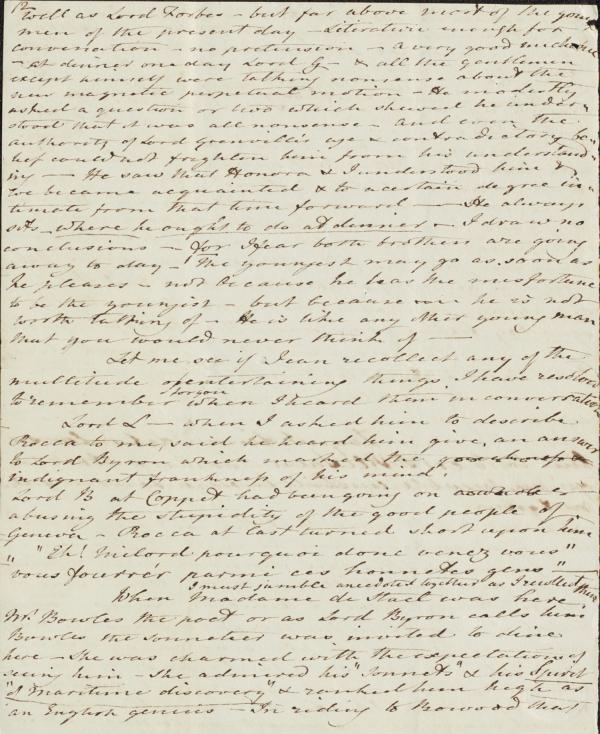 12
Well as Lord Forbes – but far above most of the young
men of the present day – Literature enough for
conversation – no pretension – a very good mechanic
– at dinner one day Lord G – & all the gentlemen
except himself were talking nonsense about the
new magnetic perpetual motion – He modestly
asked a question or two which shewed he under-
stood that it was all nonsense – and even the
authority of Lord Grenville's age & contradictory be-
lief could not frighten him from his understand-
ing — He saw that Honora & I understood him &
we became acquainted & to a certain degree in-
timate from that time forward — He always
sits where he ought to do at dinner – I draw no
conclusions – for I fear both brothers are going
away to day – The youngest may go as soon as
he pleases – not because he has the misfortune
to be the youngest – but because he is not
worth talking of – He is like any other young man
that you would never think of —
Let me see if I can recollect any of the
multitude of entertaining things I have resolved
to remember when I heard them in conversation
Lord L – when I asked him to describe
Rocca to me, said he heard him give an answer
to Lord Byron which marked the
indignant frankness of his mind
Lord B at Coppet had been going on
abusing the stupidity of the good people of
Geneva – Rocca at last turned short upon him
"Eh! Milord pourquoi donc venez vous"
"vous fourrér parmi ces honnetes gens" –
I must jumble anecdotes together as I recollect them
When Madame de Stael was here
Mr. Bowles the poet or as Lord Byron calls him
Bowles the sonneteer was invited to dine
here – She was charmed with the expectation of
seeing him – she admired his "Sonnets" & his Spirit
"of maritime discovery" & ranked him high as
an English genius – In riding to Bowood that